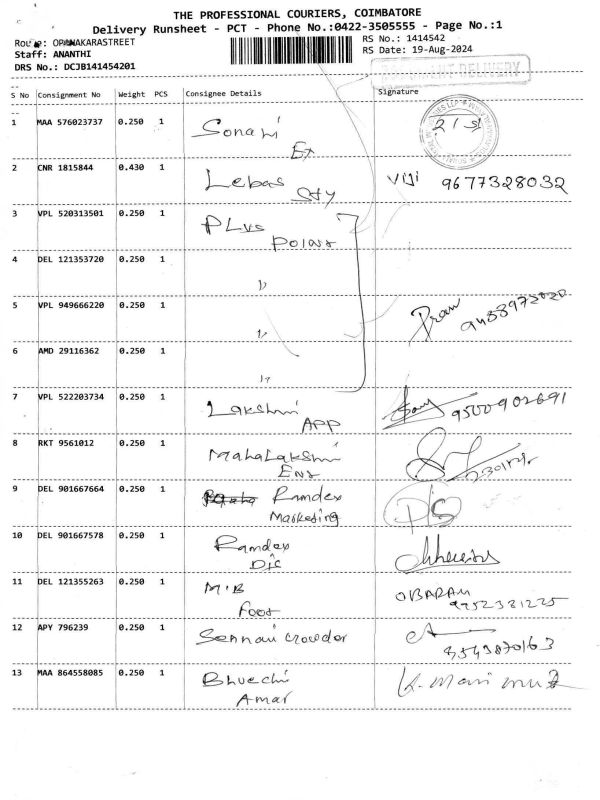 THE PROFESSIONAL COURIERS, COIMBATORE
Delivery Runsheet - PCT - Phone No.:0422-3505555 - Page No.:1
Route: OPANAKARASTREET
RS No.: 1414542
Staff: ANANTHI
RS Date: 19-Aug-2024
DRS No.: DCJB141454201
DELIVERY
S No Consignment No Weight PCS Consignee Details Signature
1 MAA 576023737 0.250 1 Sonani
Ex
2 CNR 1815844 0.430 1 Lebas Viji 9677328032
Sty
3 VPL 520313501 0.250 1 PLus
Points
4 DEL 121353720 0.250 1 〃
5 VPL 949666220 0.250 1 〃
6 AMD 29116362 0.250 1 〃
7 VPL 522203734 0.250 1 Lakshmi 9500902691
APP
8 RKT 9561012 0.250 1 MahaLakshmi
Ent
9 DEL 901667664 0.250 1 Ramdex
Marketing
10 DEL 901667578 0.250 1 Ramdex
Dic
11 DEL 121355263 0.250 1 M.B OBARAM
Foot 9952381225
12 APY 796239 0.250 1 Sennai crowdor
8543870163
13 MAA 864558085 0.250 1 Bhuechi
Amar